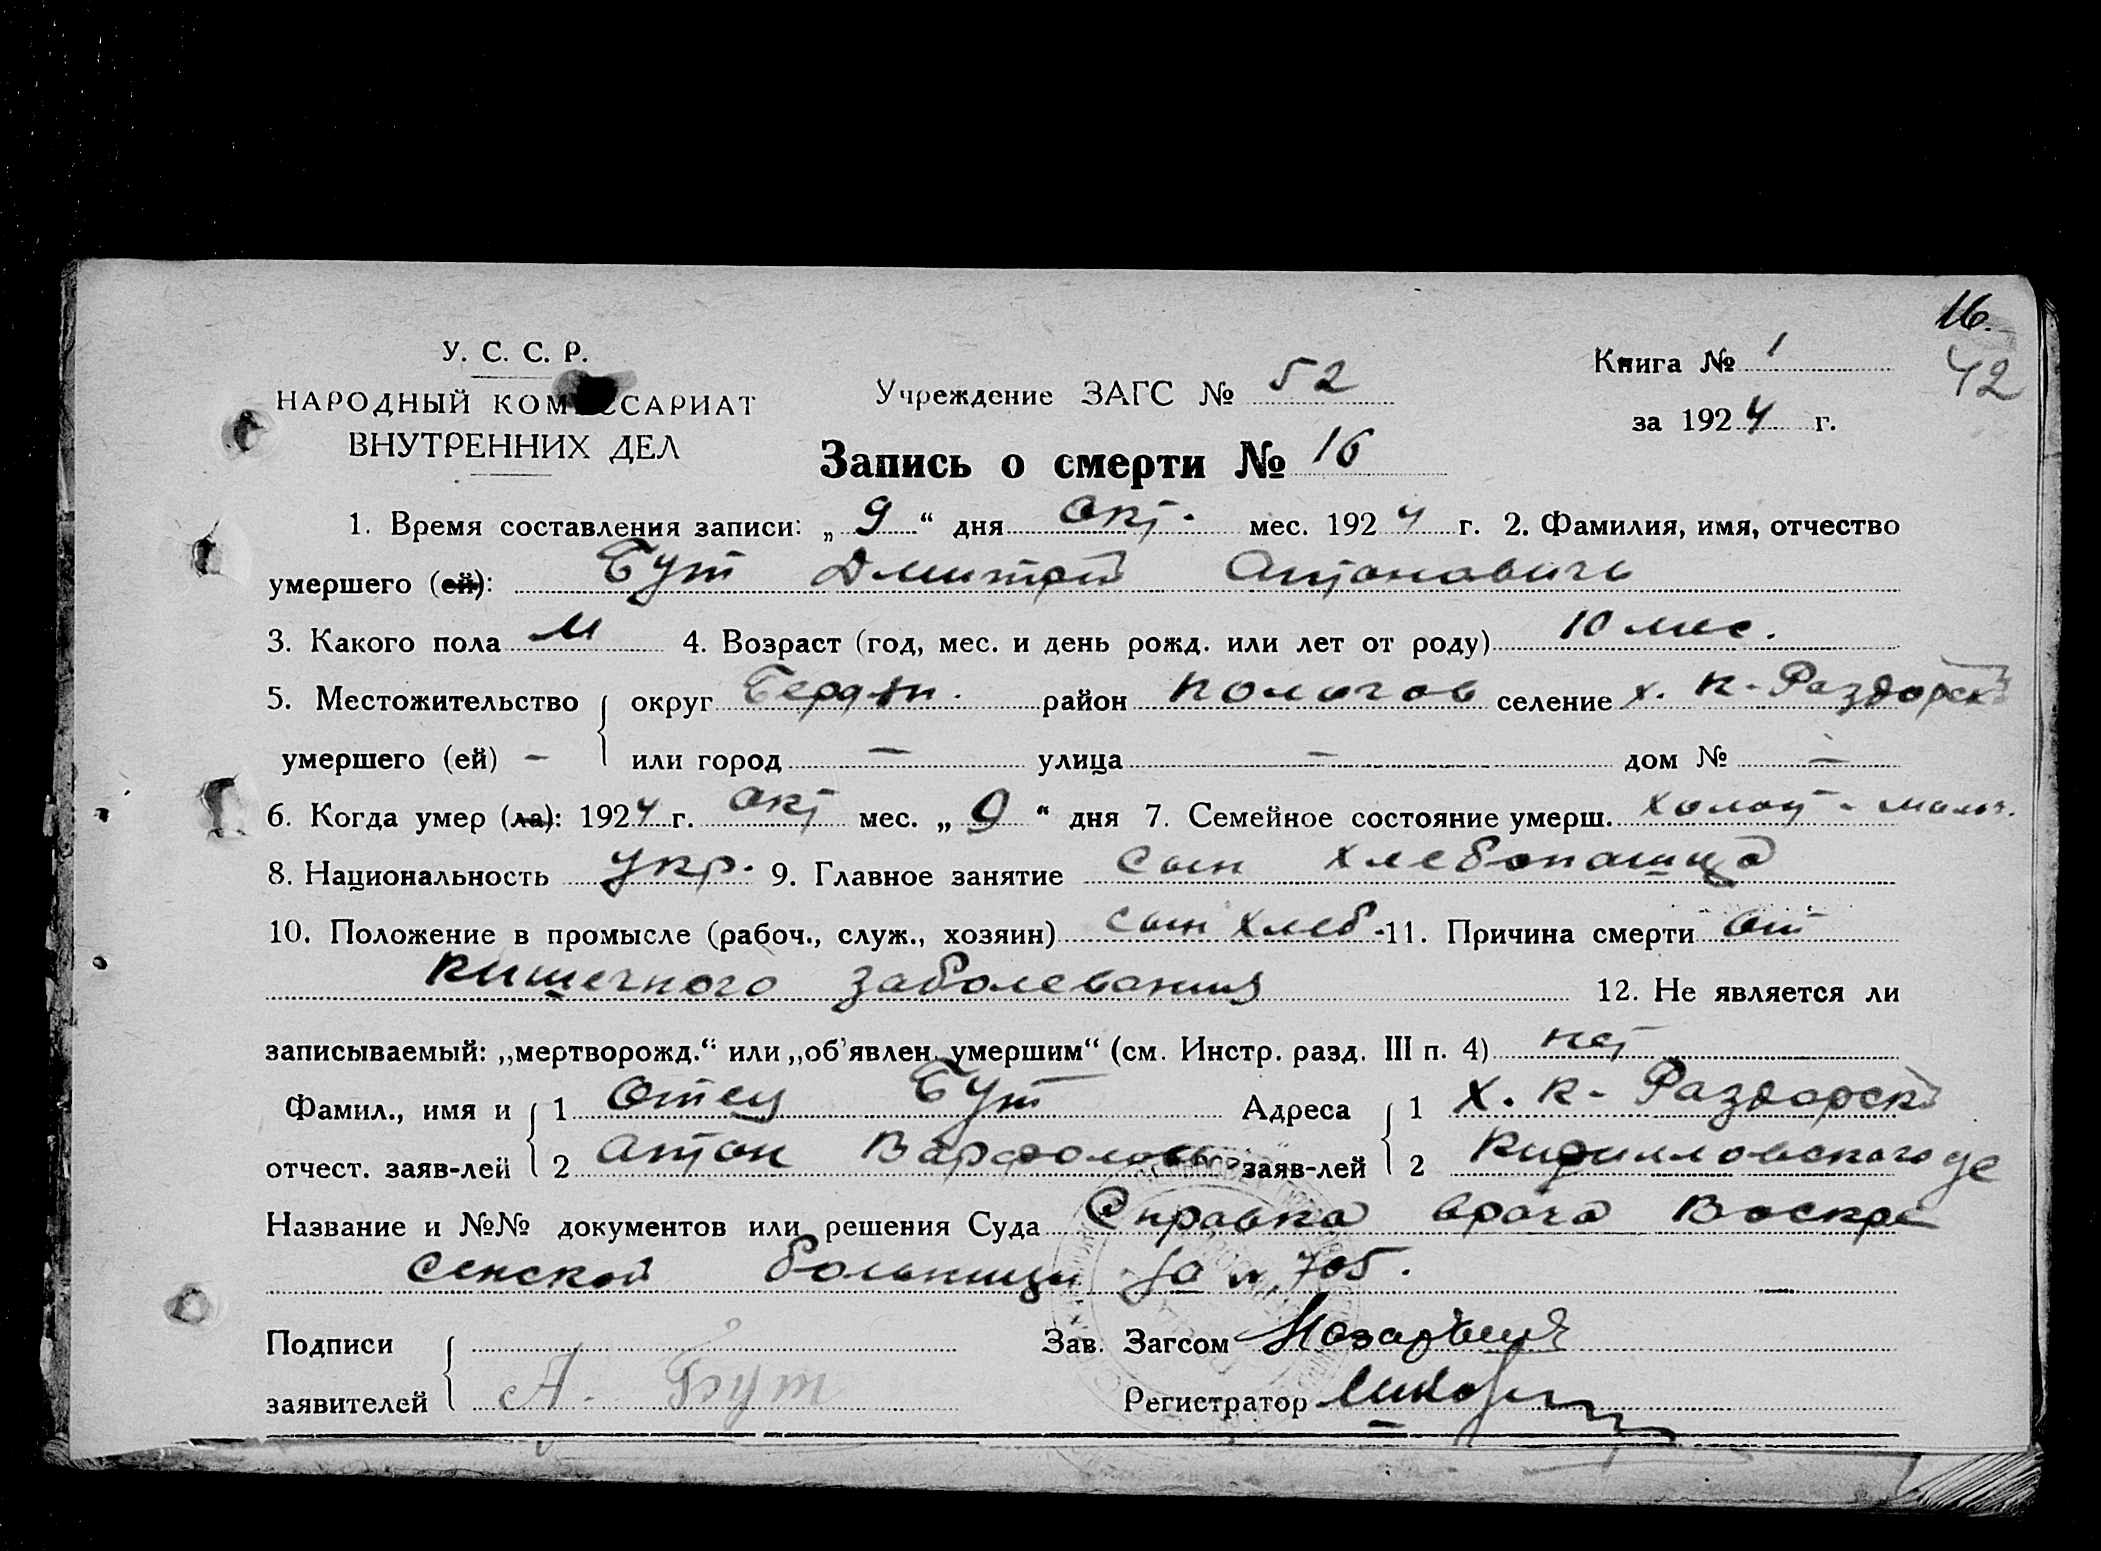 16.
42
У. С. С. Р.
НАРОДНЫЙ КОМИССАРИАТ
ВНУТРЕННИХ ДЕЛ
Учреждение ЗАГС № 52
Книга № 1
за 1924 г.
Запись о смерти № 16
1. Время составления записи: „ 9 “ дня Окт. мес. 1924 г. 2. Фамилия, имя, отчество
умершего (ей): Бут Дмитрий Антонович
3. Какого пола М 4. Возраст (год, мес. и день рожд. или лет от роду) 10 мес.
5. Местожительство округ Бердян. район Пологов селение х. К-Раздорск
умершего (ей) – или город – улица – дом № –
6. Когда умер (ла): 1924 г. окт мес. „ 9 “ дня 7. Семейное состояние умерш. холост - мальч.
8. Национальность укр. 9. Главное занятие Сын хлебопашца
10. Положение в промысле (рабоч., служ., хозяин) сын хлеб - 11. Причина смерти от
кишечного заболевания 12. Не является ли
записываемый: „мертворожд.“ или „об’явлен. умершим“ (см. Инстр. разд. III п. 4) нет
Фамил., имя и 1 Отец Бут Адреса 1 х. К- Раздорск
отчест. заяв-лей 2 Антон Варфолом заяв-лей 2 Кирилловского
Название и №№ документов или решения Суда Справка врача Воскре
сенской больницы за № 705.
Подписи
заявителей А. Бут
Зав. Загсом
Регистратор